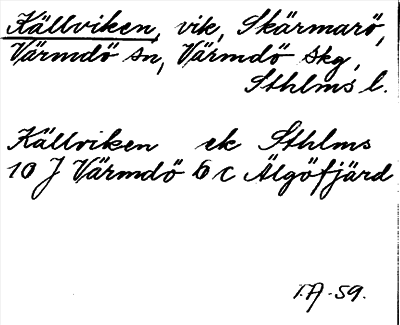 Källviken, vik, Skärmarö,
Värmdö sn, Värmdö skg,
Sthlms l.
Källviken ek Sthlms
10 J Värmdö 6 c Älgöfjärd
T.A-59.